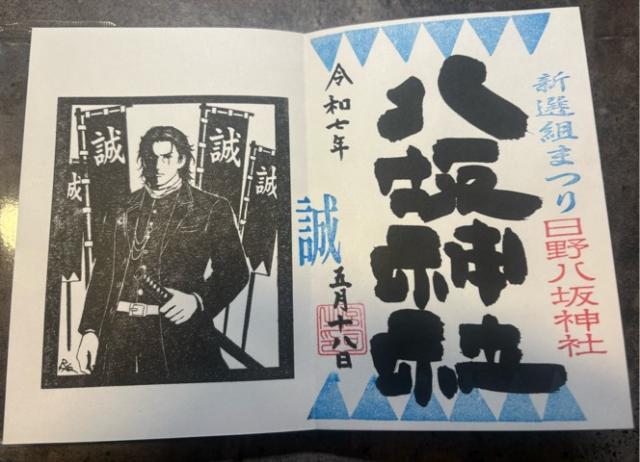 新選組まつり
日野八坂神社
八坂神社
令和七年
五月十八日
誠
誠
誠
誠
誠